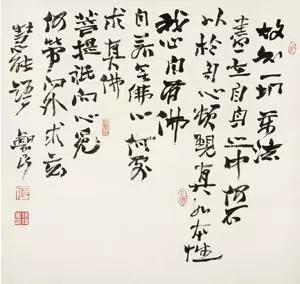 故知一切萬法
盡在自身中何不
從於自心頓現真如本性
我心自有佛
自若無佛心何處
求真佛
菩提祇向心覓
何勞向外求玄
慧能語